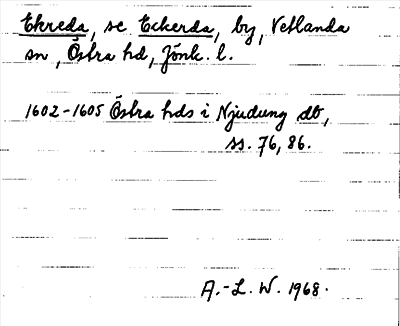 Ekreda, se Eckerda, by, Vetlanda
sn, Östra hd, Jönk. l.
1602-1605 Östra hds i Njudung db,
ss. 76, 86.
A.-L. W. 1968.